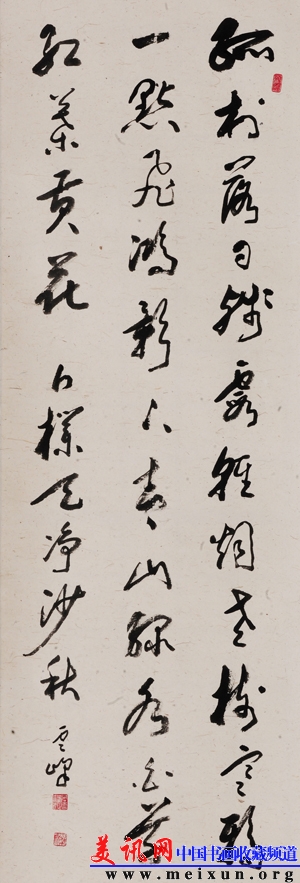 孤村落日殘霞輕烟老樹寒鴉
一點飛鴻影下青山綠水白草
紅葉黃花 白樸天净沙秋 雲峰
美讯网 中国书画收藏频道
www.meixun.org